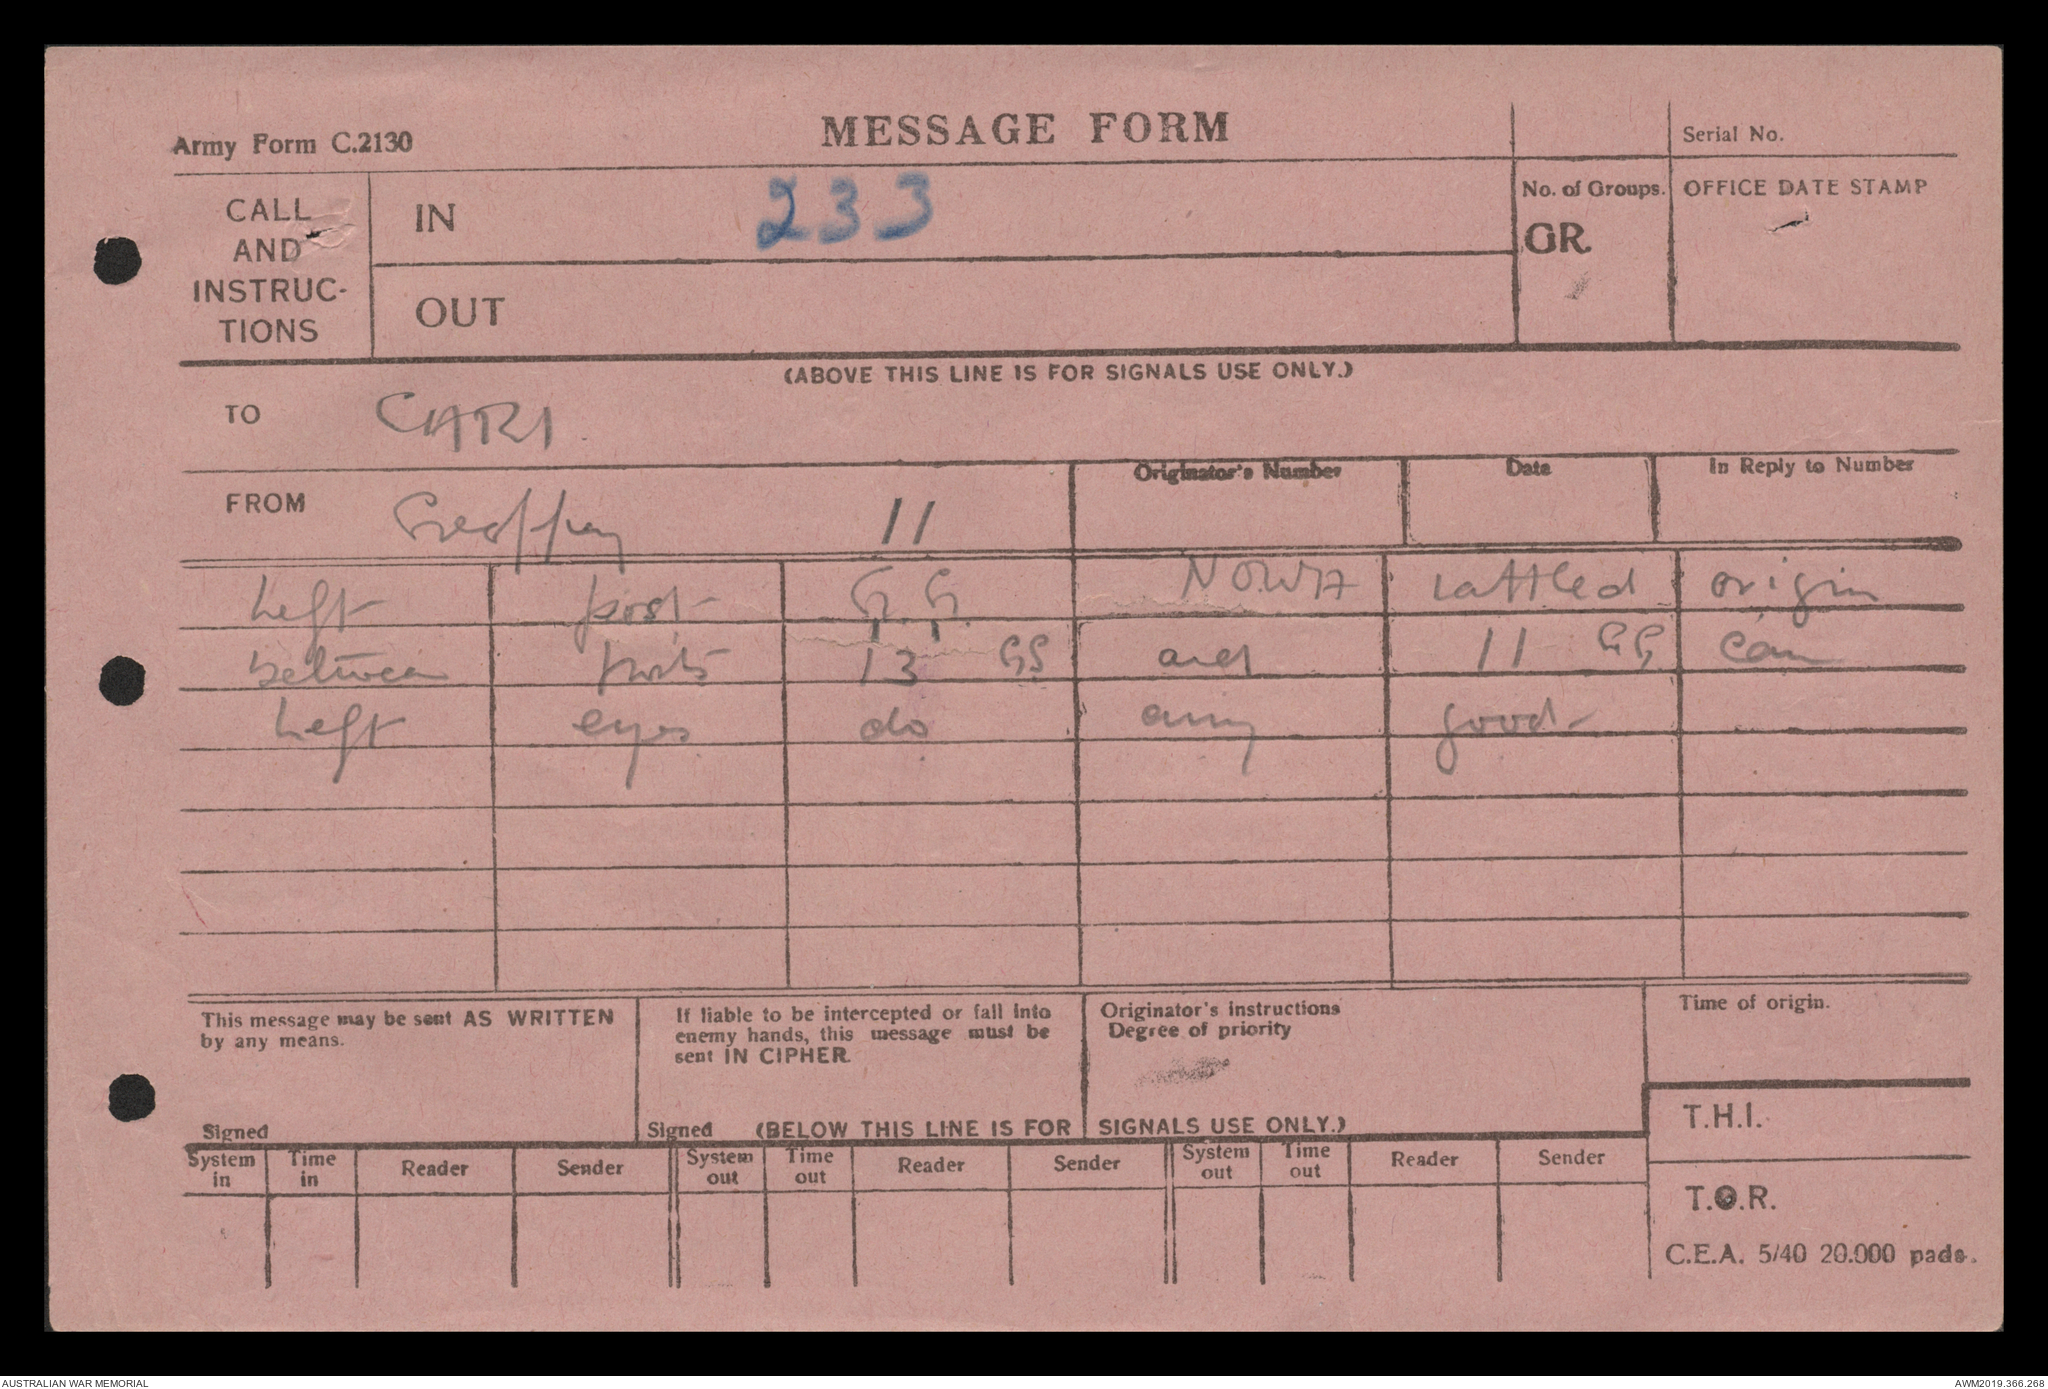 Army Form C.2130
MESSAGE FORM
Serial No.
CALL
AND
INSTRUC-
TIONS
IN
233
No. of Groups.
GR.
OFFICE DATE STAMP
OUT
(ABOVE THIS LINE IS FOR SIGNALS USE ONLY.)
TO
CARI
FROM
Geoffrey 11
Originator's Number
Date
In Reply to Number
Left post G.G. NOWA rattled origin
between posts 13 GG and 11 GG can
Left eyes do any good-
This message may be sent AS WRITTEN
by any means.
Signed
If liable to be intercepted or fall into
enemy hands, this message must be
sent IN CIPHER.
Signed
Originator's instructions
Degree of priority
Time of origin.
(BELOW THIS LINE IS FOR SIGNALS USE ONLY.)
T.H.I.
System in
Time in
Reader
Sender
System out
Time out
Reader
Sender
System out
Time out
Reader
Sender
T.O.R.
C.E.A. 5/40 20.000 pads.
AUSTRALIAN WAR MEMORIAL
AWM2019.366.268